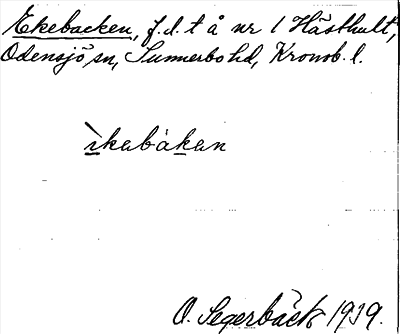 Ekebacken, f.d. t å nr 1 Hästhult,
Odensjö sn, Sunnerbo hd, Kronob. l.
ìkabàkan
O. Segerbäck 1939.